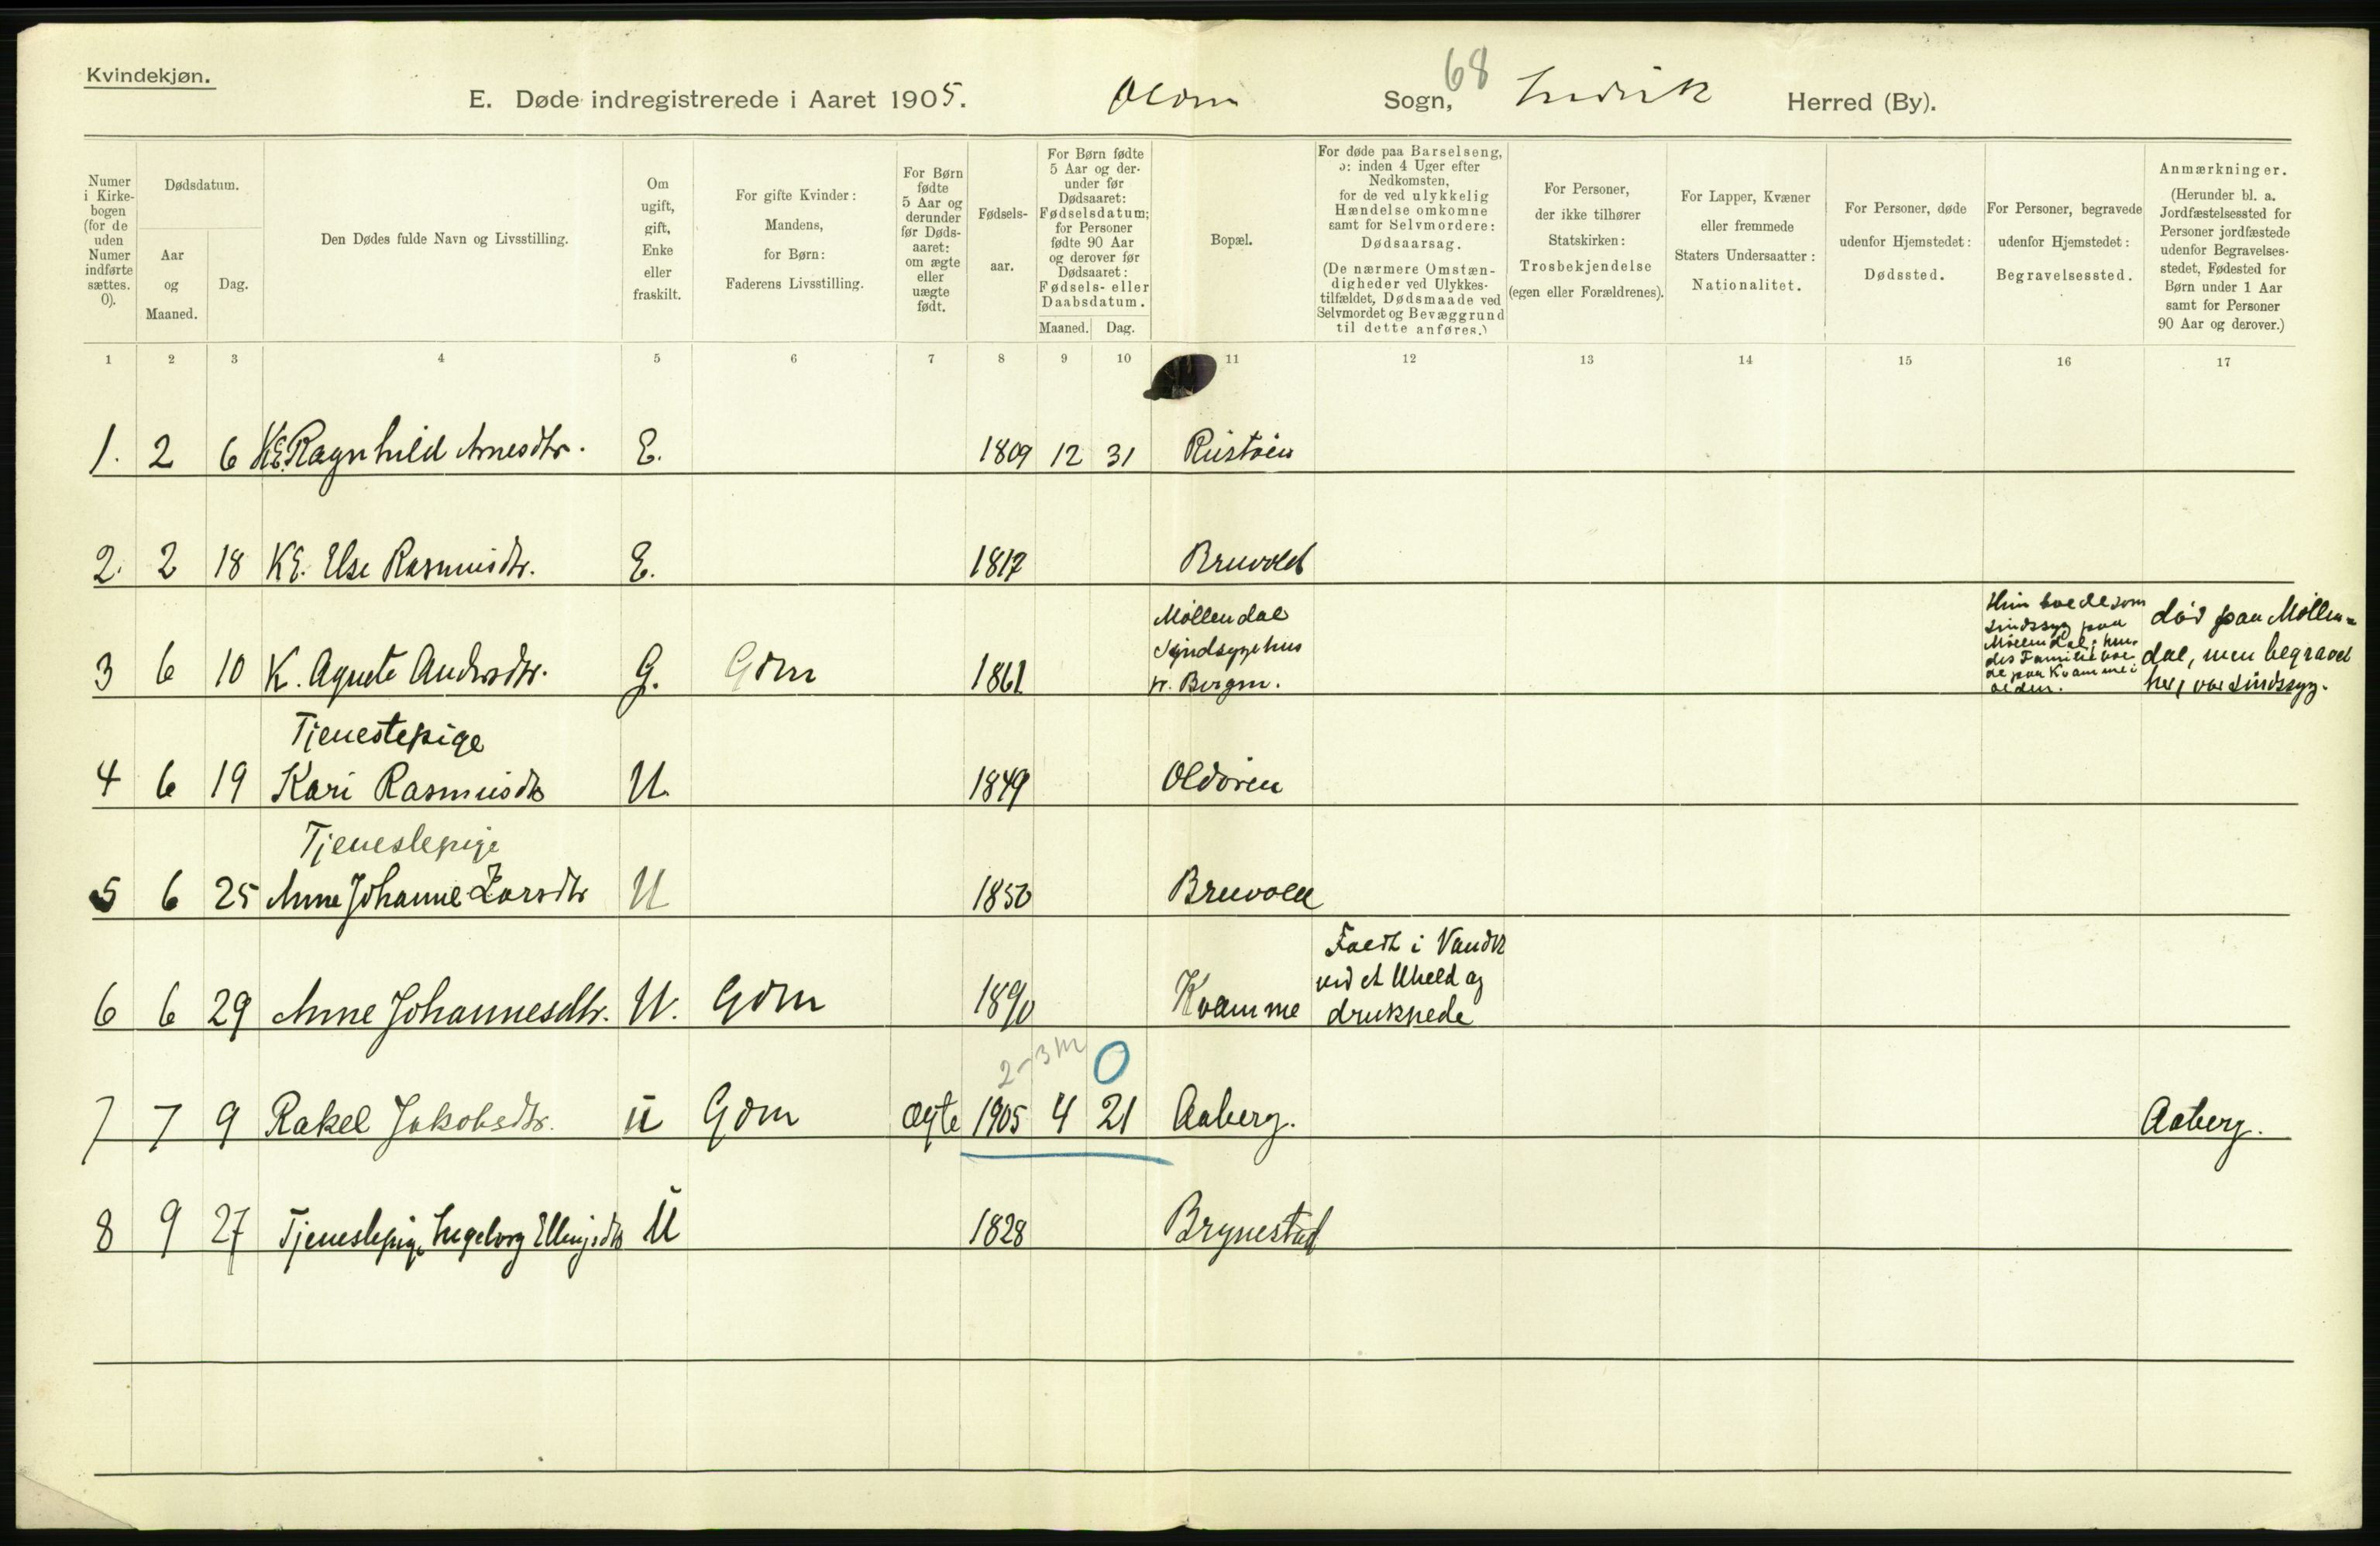 Kvindekjøn.
E. Døde indregistrerede i Aaret 1905. Olden Sogn, 68 Indvik Herred (By).
Numer i Kirke-bogen (for de uden Numer indførte sættes. 0).
Dødsdatum.
Aar og Maaned.
Dag.
Den Dødes fulde Navn og Livsstilling.
Om ugift, gift, Enke eller fraskilt.
For gifte Kvinder: Mandens, for Børn: Faderens Livsstilling.
For Børn fødte 5 Aar og derunder før Døds-aaret: om ægte eller uægte født.
Fødsels-aar.
For Børn fødte 5 Aar og der-under før Dødsaaret: Fødselsdatum; for Personer fødte 90 Aar og derover før Dødsaaret: Fødsels- eller Daabsdatum.
Maaned. Dag.
Bopæl.
For døde paa Barselseng, ɔ: inden 4 Uger efter Nedkomsten, for de ved ulykkelig Hændelse omkomne samt for Selvmordere: Dødsaarsag.
(De nærmere Omstæn-digheder ved Ulykkes-tilfældet, Dødsmaade ved Selvmordet og Bevæggrund til dette anføres.)
For Personer, der ikke tilhører Statskirken: Trosbekjendelse (egen eller Forældrenes).
For Lapper, Kvæner eller fremmede Staters Undersaatter: Nationalitet.
For Personer, døde udenfor Hjemstedet: Dødssted.
For Personer, begravede udenfor Hjemstedet: Begravelsessted.
Anmærkninger.
(Herunder bl. a. Jordfæstelsessted for Personer jordfæstede udenfor Begravelses-stedet, Fødested for Børn under 1 Aar samt for Personer 90 Aar og derover.)
1 2 3 4 5 6 7 8 9 10 11 12 13 14 15 16 17
1. 2 6 KE. Ragnhild Arnesdtr. E. 1809 12 31 Rustøen
2. 2 18 KE. Else Rasmusdtr. E. 1817 Bruvold
3 6 10 K. Agnete Andersdtr. G. Gdm 1861
Møllendal
Sindsygehus
pr. Bergen.
Hun boede som
sindssyg paa
Møllendal; hen-
des Familie boe-
de paa Kvamme i
Olden.
død paa Møllen-
dal, men begravet
her, var sindssyg.
Tjenestepige
4 6 19 Kari Rasmusdtr U. 1849 Oldøren
Tjenestepige
5 6 25 Anne Johanne Larsdtr U 1850 Bruvold
Faldt i Vandet
ved et Uheld og
druknede
6 6 29 Anne Johannesdtr. U. Gdm 1890 Kvamme
2-3 m 0
7 7 9 Rakel Jakobsdtr. U Gdm ægte 1905 4 21 Aaberg. Aaberg.
8 9 27 Tjenestepige Ingeborg Ellingsdtr U 1828 Brynestad